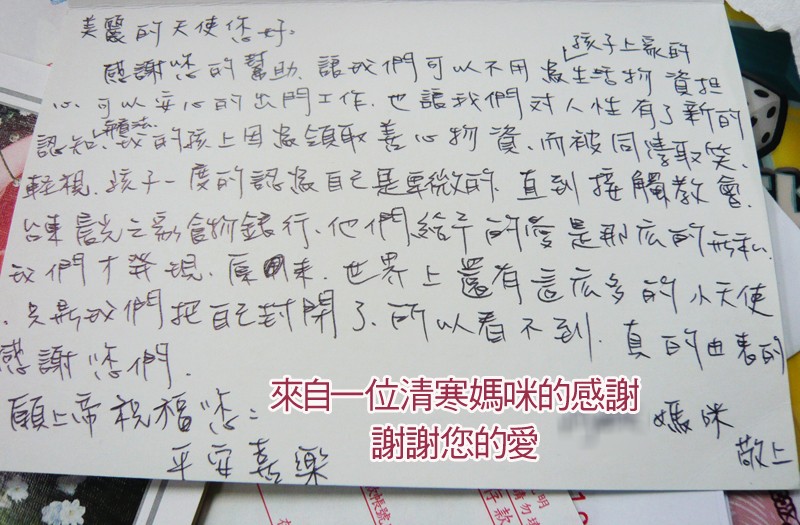 美麗的天使您好。
孩子上家的
感謝您的幫助，讓我們可以不用為生活物資担
心，可以安心的出門工作，也讓我們对人性有了新的
認知與想法。我的孩子因為領取善心物資，而被同儕取笑、
輕視，孩子一度的認為自己是卑微的，直到接觸教會、
台東晨光之家食物銀行，他們給予的愛是那庅的無私，
我們才発現，原來，世界上還有這庅多的小天使
，只是我們把自己封閉了，所以看不到，真的由衷的
感謝您們。
願上帝祝福您：
平安喜樂
媽咪
敬上
來自一位清寒媽咪的感謝
謝謝您的愛